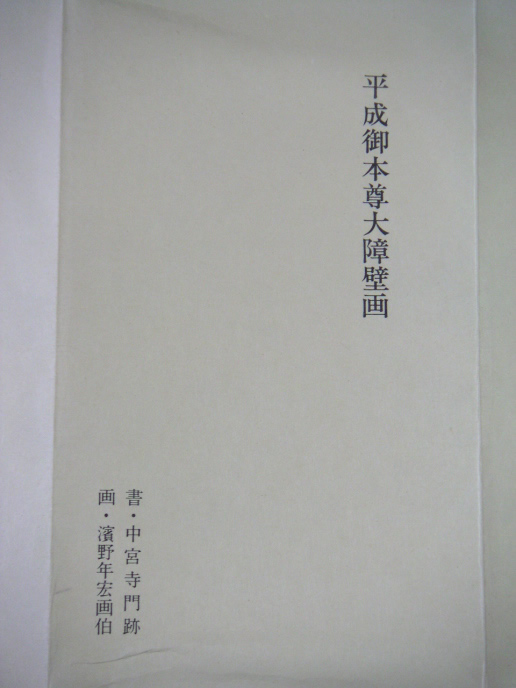 平成御本尊大障壁画
書・中宮寺門跡
画・濱野年宏画伯